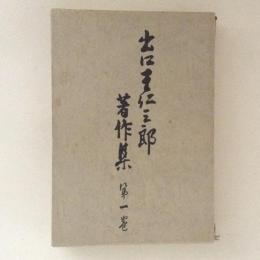 出口王仁三郎
著作集
第一巻